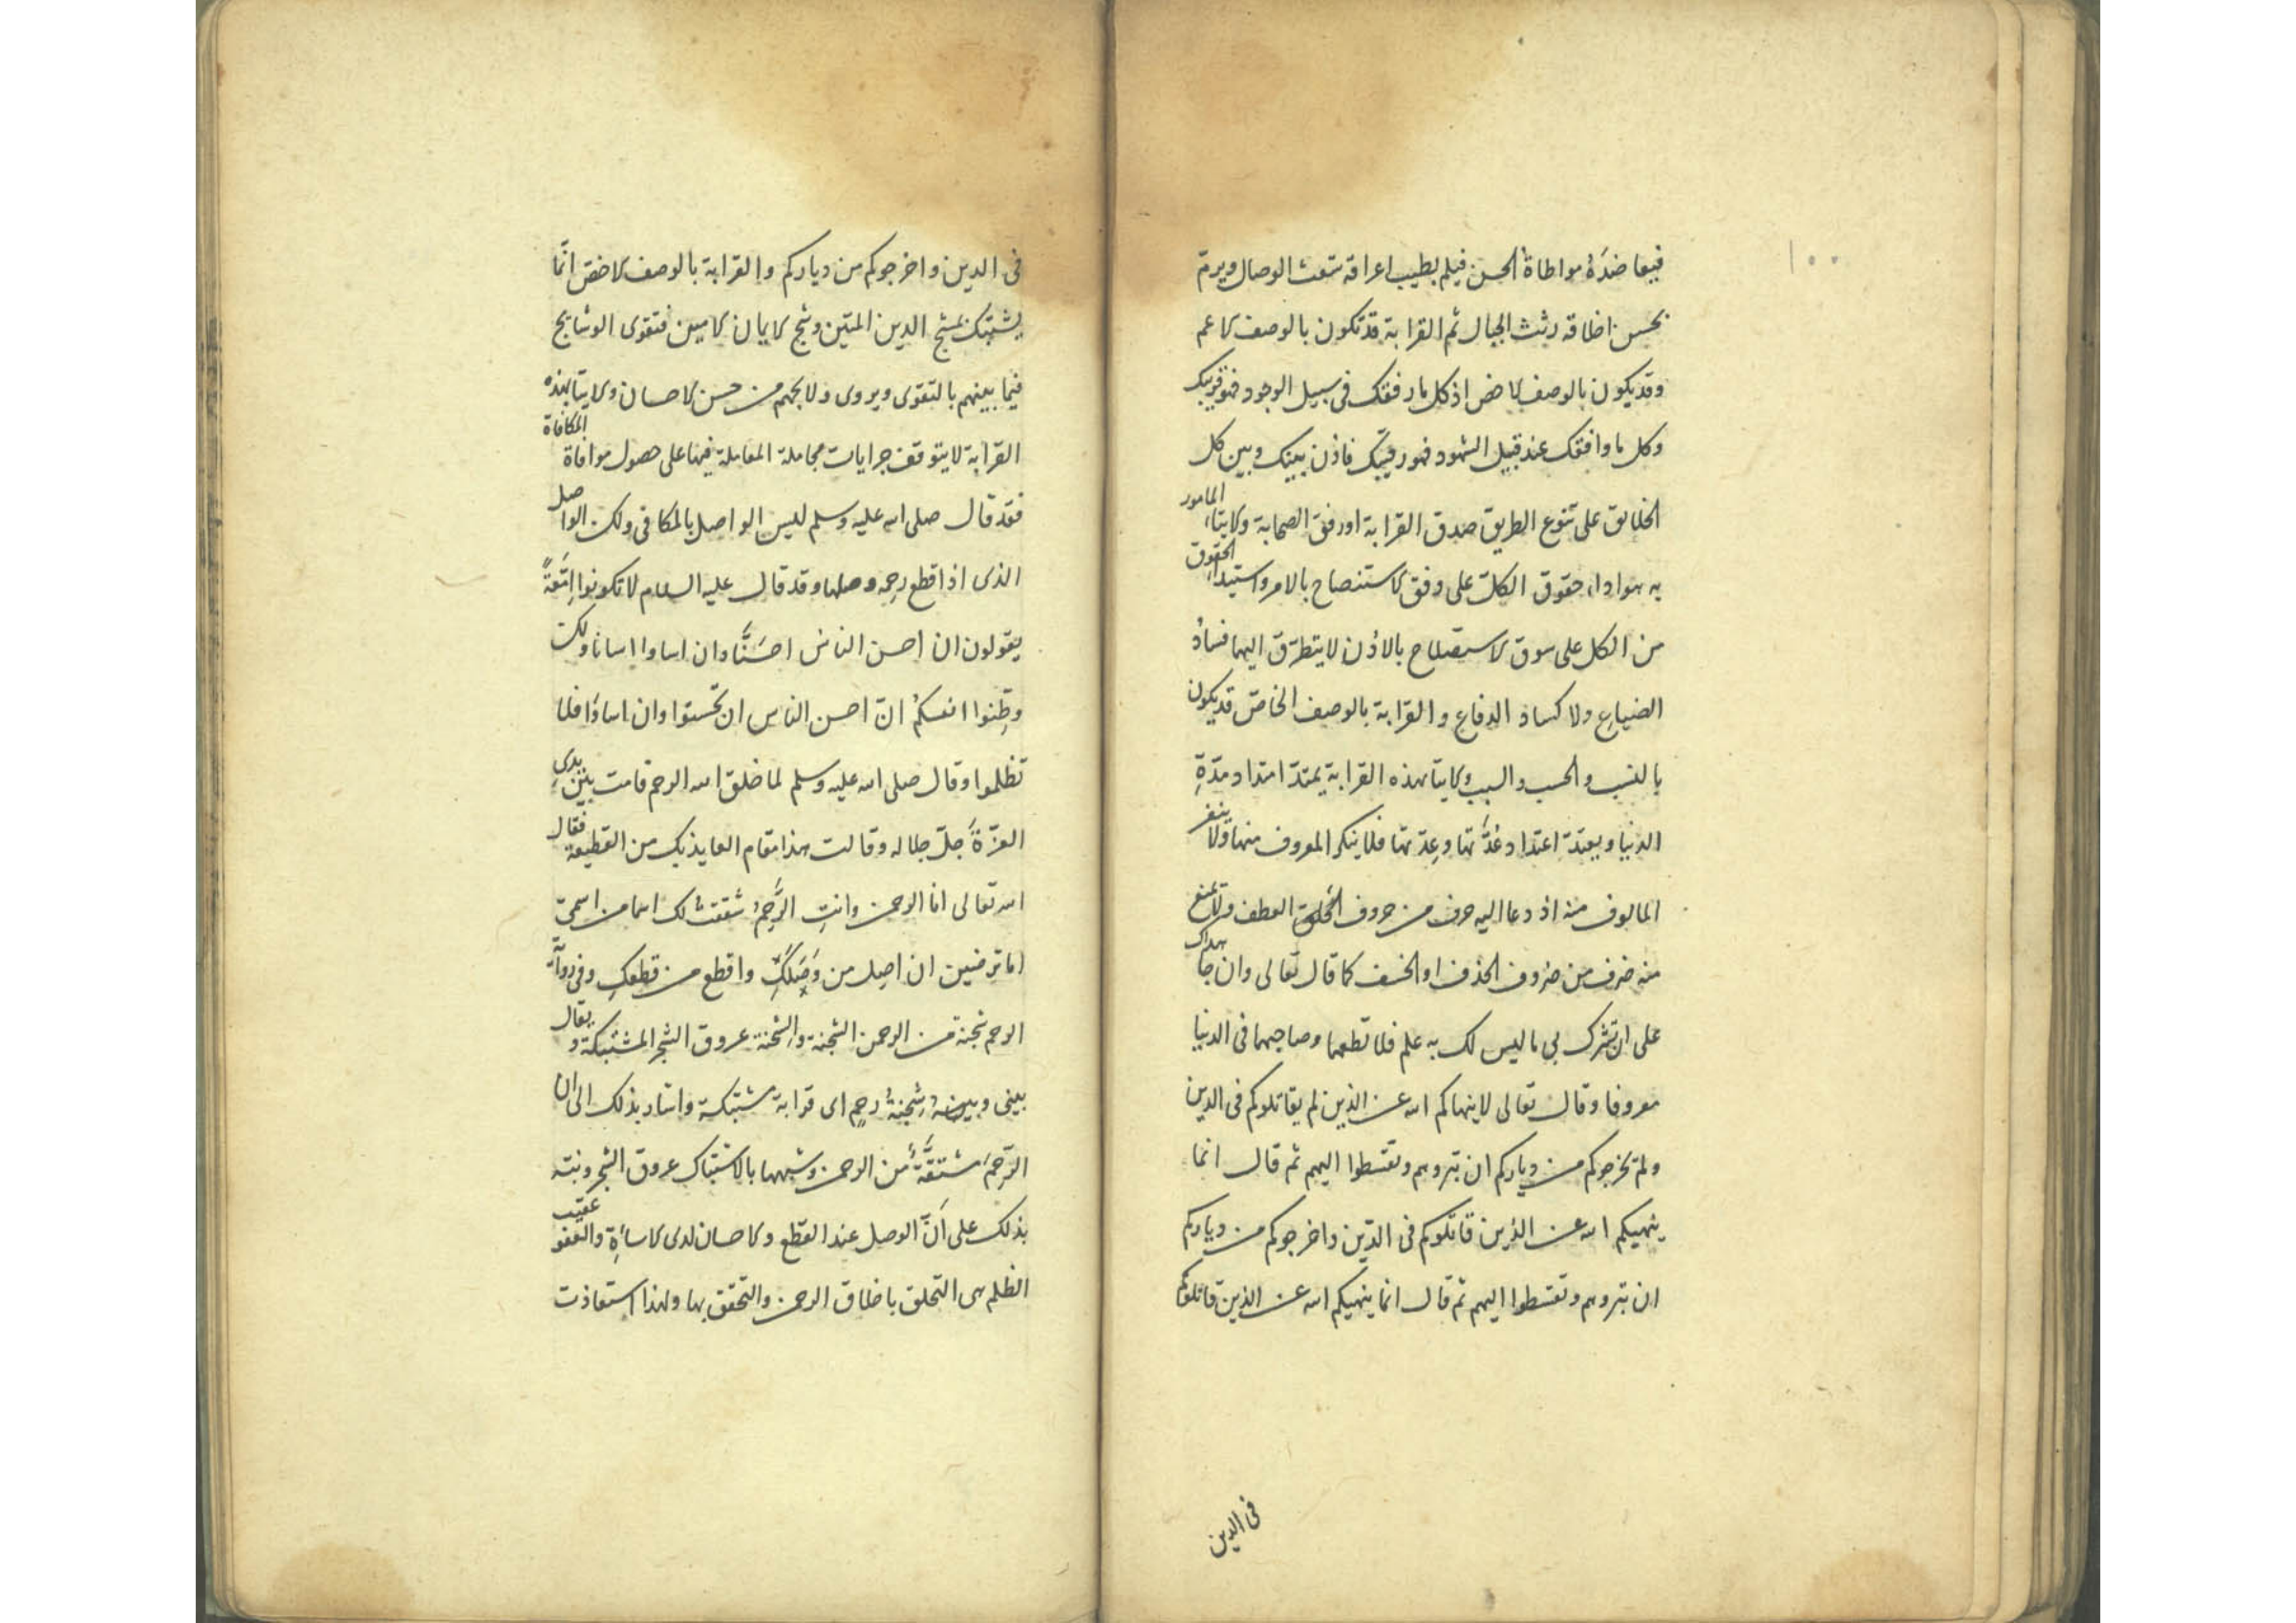 ١٠٠
فيعاضده مواطاة الحسن فيلم بطيب اعراقه شعث الوصال ويرم
بحسن اخلاقه رثث الحبال ثم القرابة قد تكون بالوصف الاعم
وقد يكون بالوصف الاخص اذ كل ما رفقك فى سبيل الوجود فهو قريبك
وكل ما وافقك عند قبيل الشهود فهو رقيبك فاذن بينك وبين كل
الخلايق على تنوع الطريق صدق القرابة او رفق الصحابة والايتاء المامور
به هو اداء حقوق الكل على وفق الاستنصاح بالامر واستيداء الحقوق
من الكل على سوق الاستصلاح بالاذن لا يتطرق اليهما فساد
الضياع ولا كساد الدفاع والقرابة بالوصف الخاص قد يكون
بالنسب والحسب والسبب والايتا بهذه القرابة يمتد امتداد مدة
الدنيا ويعتد اعتداد عدتها وعدتها فلا ينكر المعروف منها ولا ينفر
المالوف منه اذ دعا اليه حرف من حروف العطف ولا يمنع
منه ضرف من ضروف الحذف او الخسف كما قال تعالى وان جاهداك
على ان تشرك بى ما ليس لك به علم فلا تطعهما وصاحبهما فى الدنيا
معروفا وقال تعالى لا ينهاكم الله عن الذين لم يقاتلوكم فى الدين
ولم يخرجوكم من دياركم ان تبروهم وتقسطوا اليهم ثم قال انما
ينهيكم الله عن الذين قاتلوكم فى الدين واخرجوكم من دياركم
ان تبروهم وتقسطوا اليهم ثم قال انما ينهيكم الله عن الذين قاتلوكم
فى الدين
فى الدين واخرجوكم من دياركم والقرابة بالوصف الاخص انما
يشتبك بمشج الدين المتين وشج الايمان الامين فتقوى الوشايج
فيما بينهم بالتقوى ويروى ولايجهم من حسن الاحسان والايتا بهذه
القرابة لا يتوقف جرايات مجاملة المعاملة فيها على حصول موافاة المكافاة
فقد قال صلى الله عليه وسلم ليس الواصل بالمكافى ولكن الواصل
الذى اذا قطع رحمه وصلها وقد قال عليه السلام لا تكونوا امعة
يقولون ان احسن الناس احسنا وان اساوا اسانا ولكن
وطنوا انفسكم ان احسن الناس ان تحسنوا وان اساؤا فلا
تظلموا وقال صلى الله عليه وسلم لما خلق الله الرحم قامت بين يدى
العزة جل جلاله وقالت هذا مقام العايذ بك من القطيعة فقال
الله تعالى انا الرحمن وانت الرحم شققت لك اسما من اسمى
اما ترضين ان اصل من وصلك واقطع من قطعك وفى رواية
الرحم شجنة من الرحمن الشجنة والشجنة عروق الشجر المشتبكة ويقال
بينى وبينه شجنة رحم اى قرابة مشتبكة واشار بذلك الى ان
الرحم مشتقة من الرحمن وشبهها بالاشتباك عروق الشجر ونبه
بذلك على ان الوصل عند القطع والاحسان لدى الاساءة والعفو عقيب
الظلم هى التخلق باخلاق الرحمن والتحقق بها ولهذا استعاذت